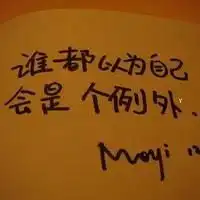 谁都以为自己
会是个例外.
Moyi